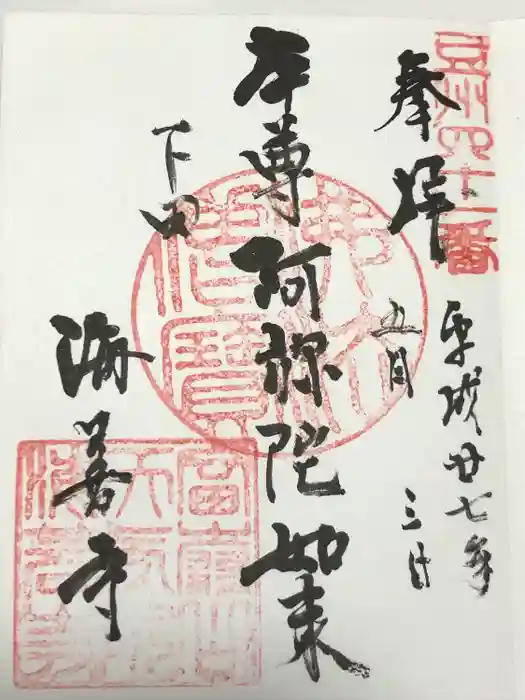 豆州四十一番
奉拝
平成廿七年
五月
三日
本尊阿弥陀如来
下田
海善寺
佛法僧寶